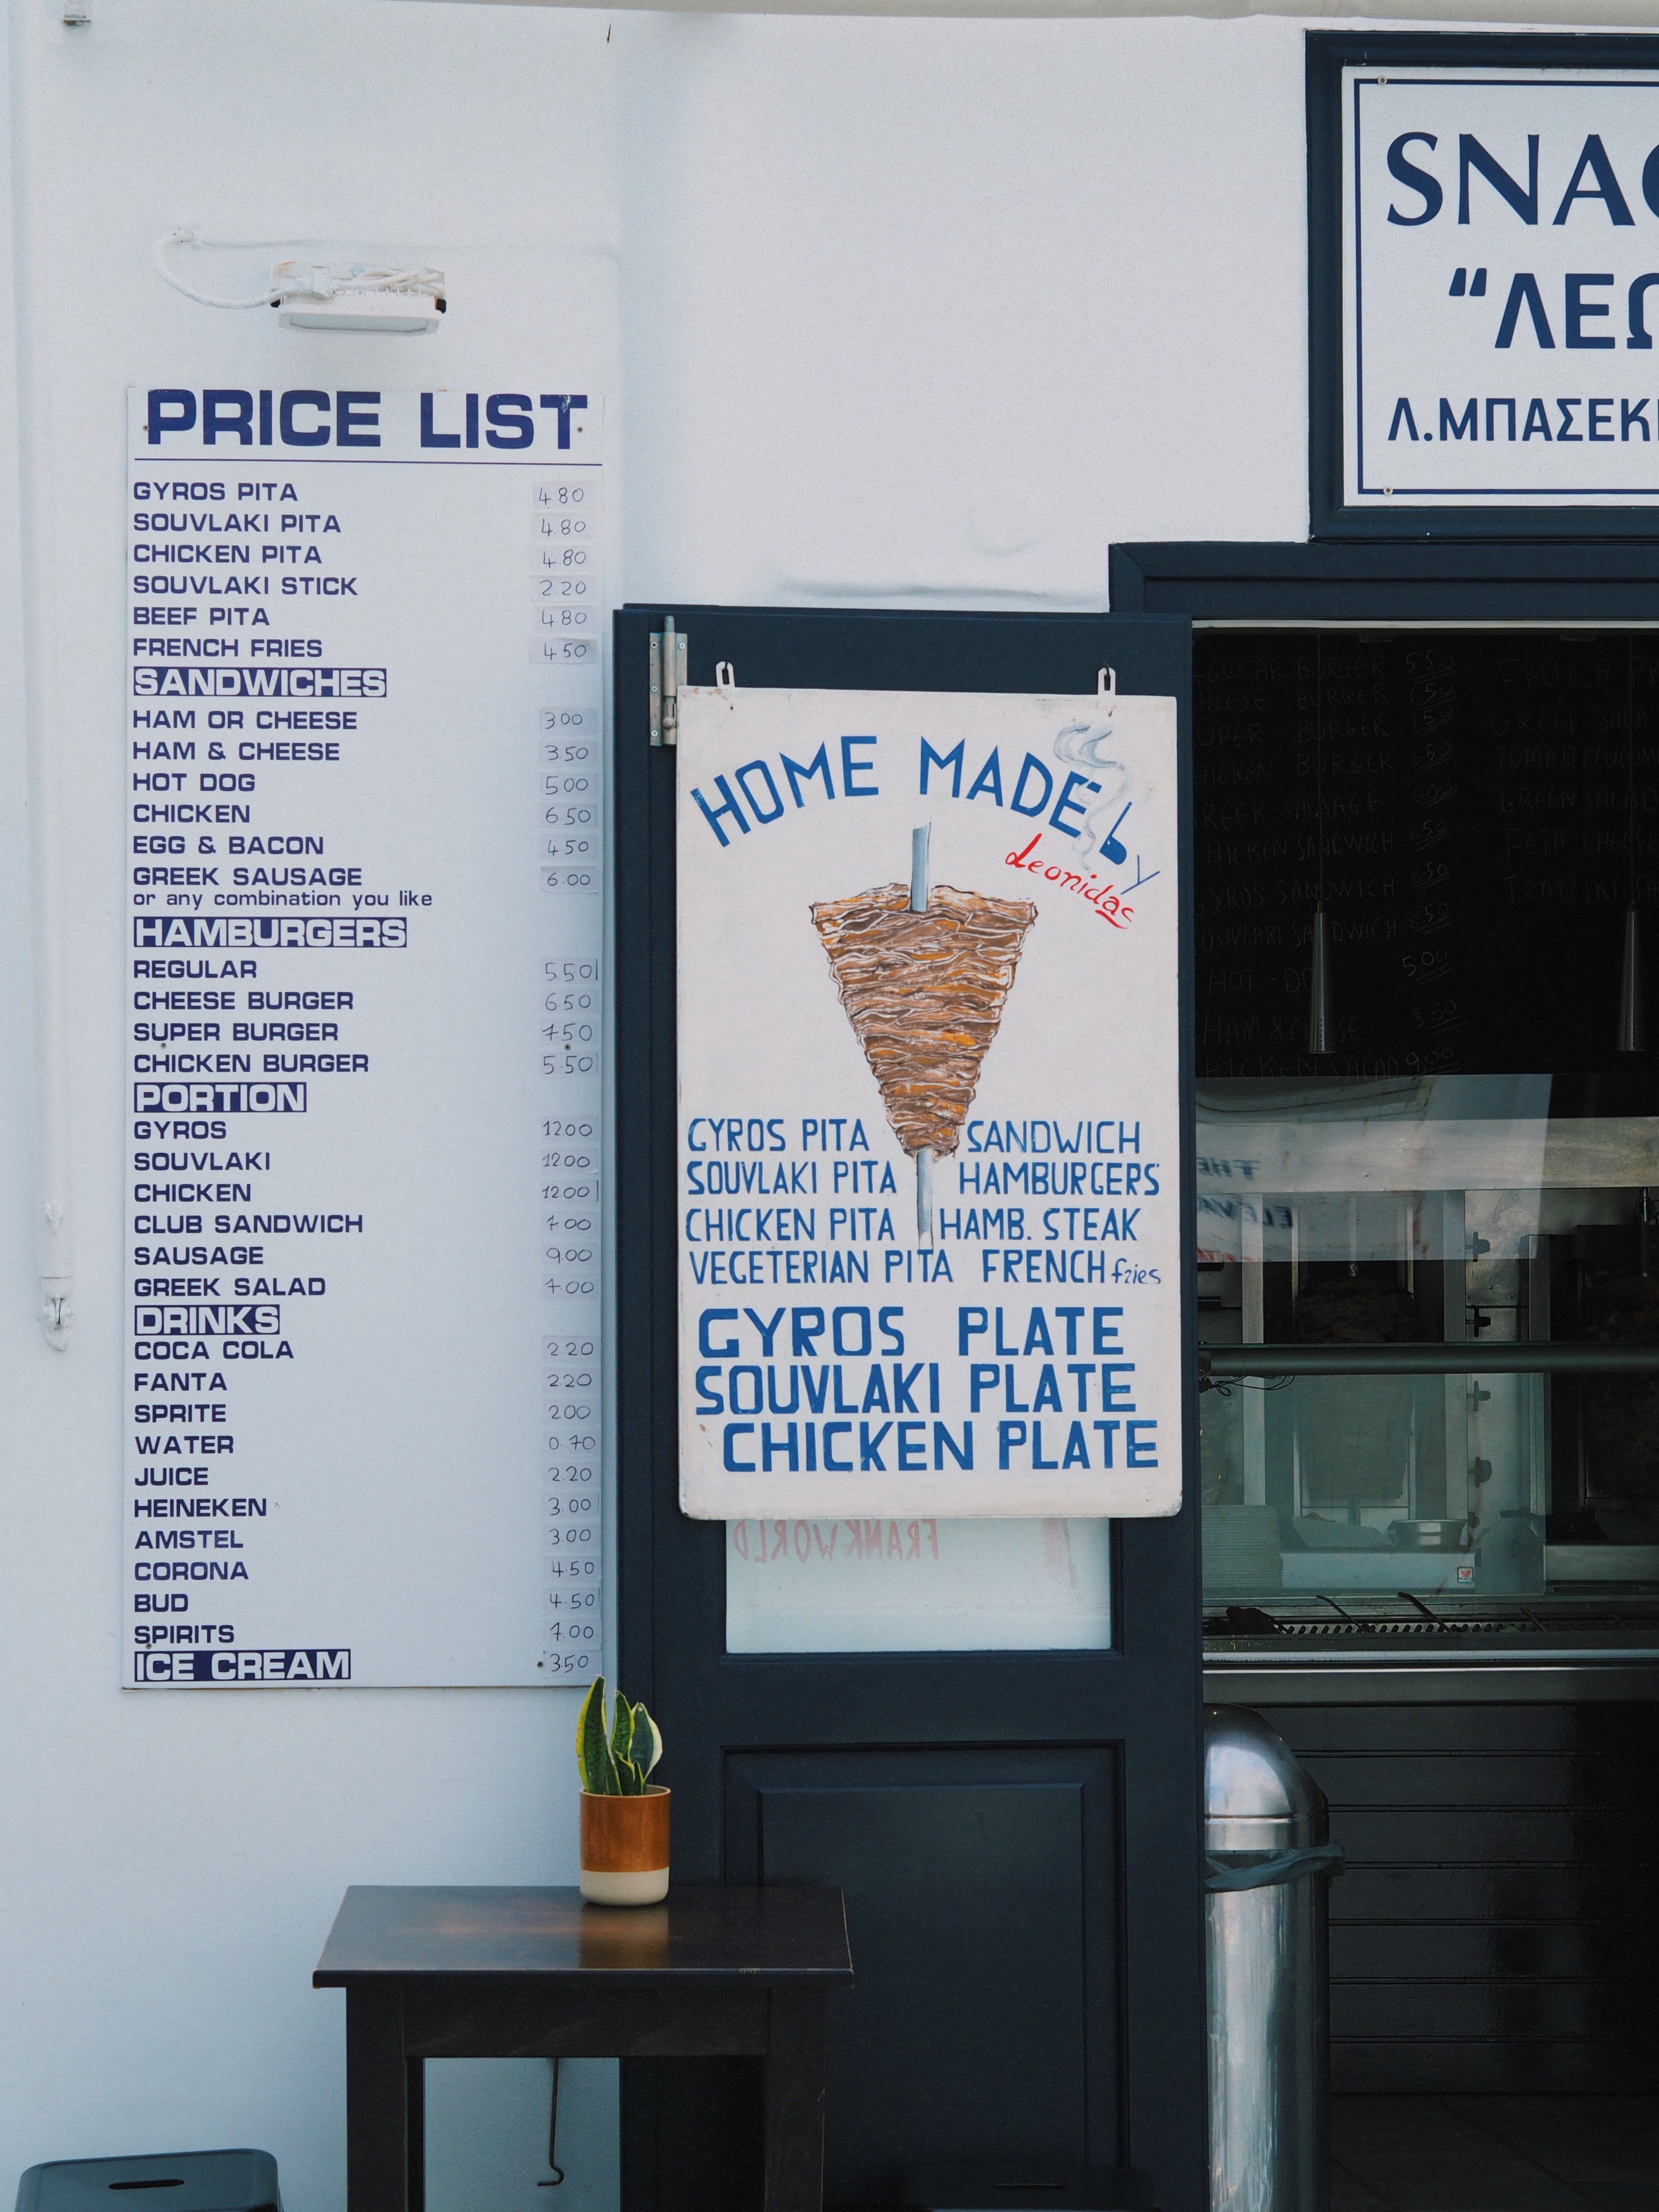 PRICE LIST
GYROS PITA 4.80
SOUVLAKI PITA 4.80
CHICKEN PITA 4.80
SOUVLAKI STICK 2.20
BEEF PITA 4.80
FRENCH FRIES 4.50
SANDWICHES
HAM OR CHEESE 3.00
HAM & CHEESE 3.50
HOT DOG 5.00
CHICKEN 6.50
EGG & BACON 4.50
GREEK SAUSAGE 6.00
or any combination you like
HAMBURGERS
REGULAR 5.50
CHEESE BURGER 6.50
SUPER BURGER 7.50
CHICKEN BURGER 5.50
PORTION
GYROS 12.00
SOUVLAKI 12.00
CHICKEN 12.00
CLUB SANDWICH 7.00
SAUSAGE 9.00
GREEK SALAD 7.00
DRINKS
COCA COLA 2.20
FANTA 2.20
SPRITE 2.00
WATER 0.70
JUICE 2.20
HEINEKEN 3.00
AMSTEL 3.00
CORONA 4.50
BUD 4.50
SPIRITS 7.00
ICE CREAM 3.50
HOME MADE by
Leonidas
GYROS PITA SANDWICH
SOUVLAKI PITA HAMBURGERS
CHICKEN PITA HAMB. STEAK
VEGETERIAN PITA FRENCH fries
GYROS PLATE
SOUVLAKI PLATE
CHICKEN PLATE
FRANK WORLD
SNAC
“ΛΕΩ
Λ.ΜΠΑΣΕΚ
BURGER 5.50
BURGER 6.50
BURGER
BURGER
SAUSAGE
SANDWICH
GYROS SANDWICH
HOT-DO 5.00
HAM &
SALAD 9.00
GREEN SALAD
FETA CHEESE
THE